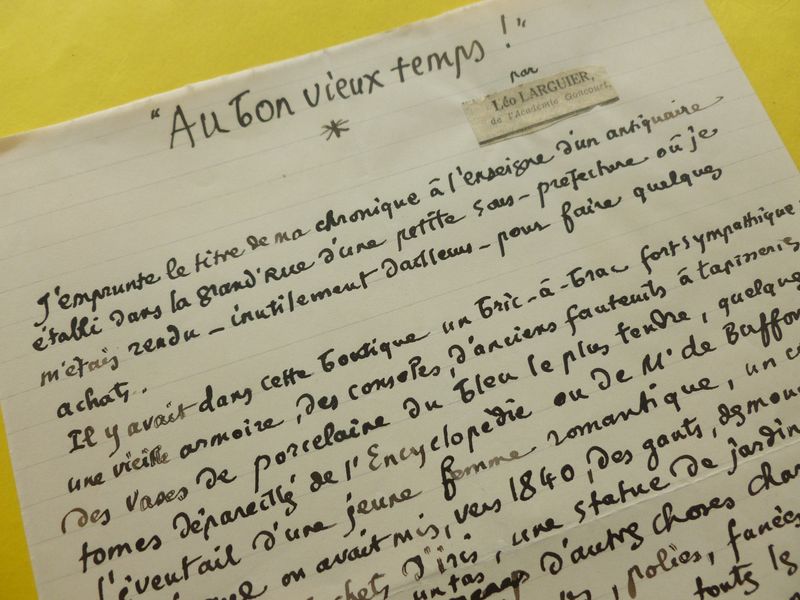 "Au bon vieux temps !"
par
Léo LARGUIER,
de l'Académie Goncourt,
*
J'emprunte le titre de ma chronique à l'enseigne d'un antiquaire
établi dans la grand'Rue d'une petite sous-préfecture où je
m'étais rendu - inutilement d'ailleurs - pour faire quelques
achats.
Il y avait dans cette boutique un bric-à-brac fort sympathique
une vieille armoire, des consoles, d'anciens fauteuils à tapisseries
des vases de porcelaine du bleu le plus tendre, quelques
tomes dépareillés de l'Encyclopédie ou de Mr de Buffon
l'éventail d'une jeune femme romantique, un
on avait mis, vers 1840, des gants, des
d'iris, une statue de jardin
un tas, d'autres choses
polies, fanées
touts